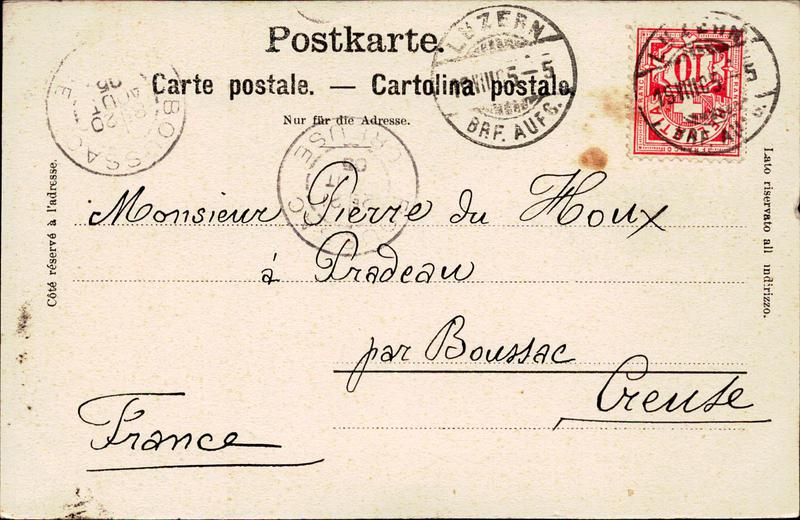 Postkarte.
Carte postale. — Cartolina postale.
Nur für die Adresse.
LUZERN
BRF. AUFG.
10
BOUSSAC
20
AOUT
05
Côté réservé à l'adresse.
Lato riservato all indirizzo.
Monsieur Pierre du Houx
à Pradeau
par Boussac
Creuse
France